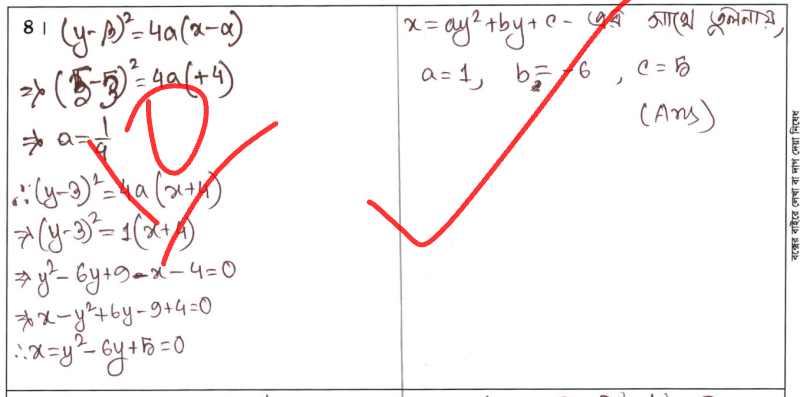 8। (y-β)²=4a(x-α)
⇒(5-3)²=4a(+4)
⇒ a=1/4
∴(y-3)²=4a(x+4)
⇒(y-3)²=1(x+4)
⇒y²-6y+9-x-4=0
⇒x-y²+6y-9+4=0
∴x=y²-6y+5=0
x=ay²+by+c- এর সাথে তুলনায়,
a=1, b=-6, c=5
(Ans)
বক্সের বাইরে লেখা বা দাগ দেয়া নিষেধ